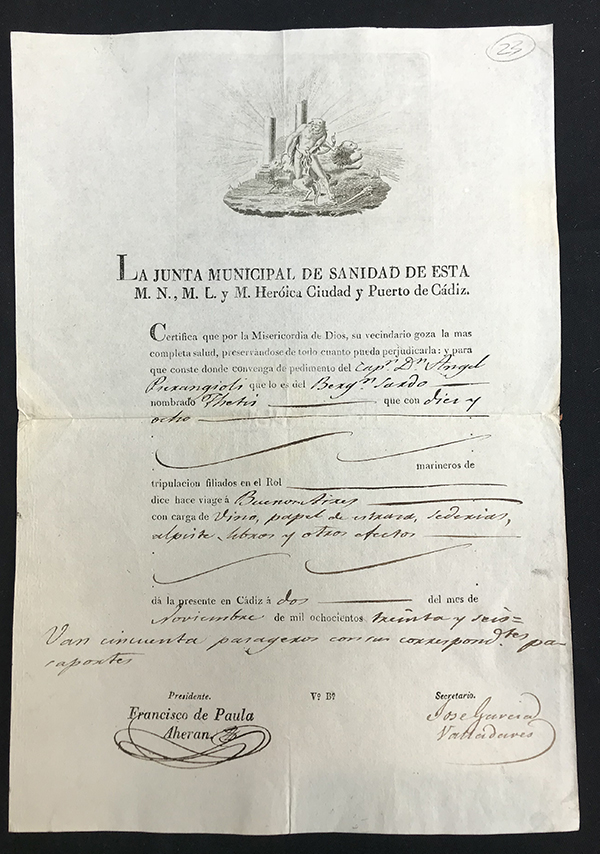 23
LA JUNTA MUNICIPAL DE SANIDAD DE ESTA
M. N., M. L. y M. Heróica Ciudad y Puerto de Cádiz.
Certifica que por la Misericordia de Dios, su vecindario goza la mas
completa salud, preservándose de todo cuanto pueda perjudicarla: y para
que conste donde convenga de pedimento del Capn. Dn. Angel
Pierangioli que lo es del Bergn. Sardo
nombrado Thetis que con diez y
ocho
marineros de
tripulacion filiados en el Rol
dice hace viage á Buenos Aires
con carga de Vino, papel de estraza, sederias,
alpiste libros y otros efectos
dá la presente en Cádiz á dos del mes de
Noviembre de mil ochocientos treinta y seis=
Van cincuenta pasageros con sus correspondtes. pa-
saportes
Presidente. Vº Bº Secretario.
Francisco de Paula Jose Garcia
Aheran Valladares